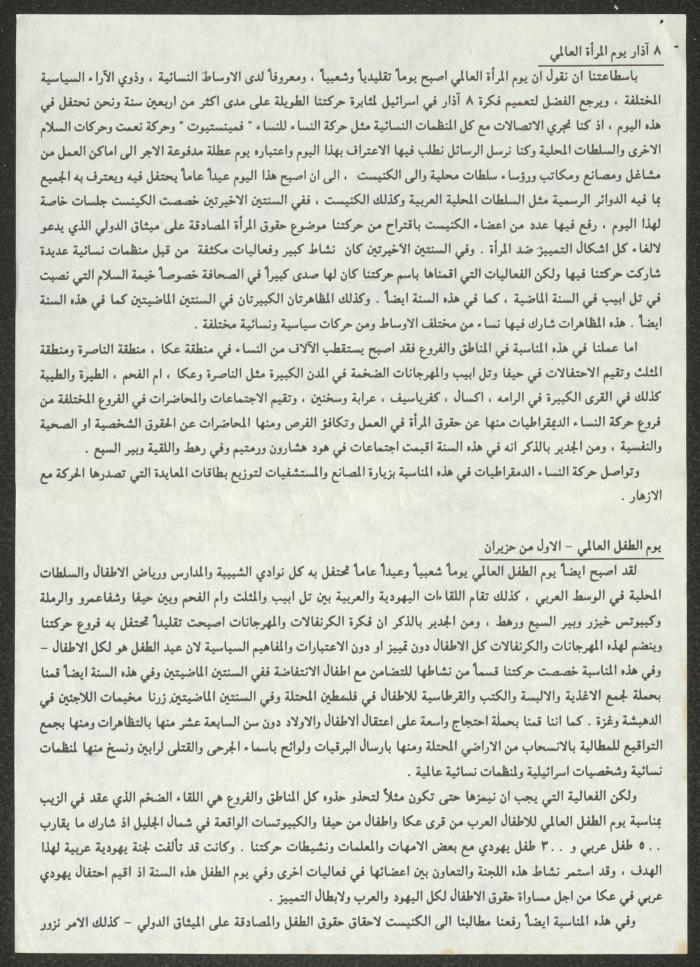 ٨ آذار يوم المرأة العالمي
باستطاعتنا ان نقول ان يوم المرأة العالمي اصبح يوماً تقليدياً وشعبياً ، ومعروفاً لدى الاوساط النسائية ، وذوي الآراء السياسية
المختلفة ، ويرجع الفضل لتعميم فكرة ٨ آذار في اسرائيل لمثابرة حركتنا الطويلة على مدى اكثر من اربعين سنة ونحن نحتفل في
هذه اليوم ، اذ كنا نجري الاتصالات مع كل المنظمات النسائية مثل حركة النساء للنساء " فمينستيوت " وحركة نعمت وحركات السلام
الاخرى والسلطات المحلية وكنا نرسل الرسائل نطلب فيها الاعتراف بهذا اليوم واعتباره يوم عطلة مدفوعة الاجر الى اماكن العمل من
مشاغل ومصانع ومكاتب ورؤساء سلطات محلية والى الكنيست ، الى ان اصبح هذا اليوم عيداً عاماً يحتفل فيه ويعترف به الجميع
بما فيه الدوائر الرسمية مثل السلطات المحلية العربية وكذلك الكنيست ، ففي السنتين الاخيرتين خصصت الكينست جلسات خاصة
لهذا اليوم ، رفع فيها عدد من اعضاء الكنيست باقتراح من حركتنا موضوع حقوق المرأة المصادقة على ميثاق الدولي الذي يدعو
لالغاء كل اشكال التمييز ضد المرأة . وفي السنتين الاخيرتين كان نشاط كبير وفعاليات مكثفة من قبل منظمات نسائية عديدة
شاركت حركتنا فيها ولكن الفعاليات التي اقمناها باسم حركتنا كان لها صدى كبيراً في الصحافة خصوصاً خيمة السلام التي نصبت
في تل ابيب في السنة الماضية ، كما في هذه السنة ايضاً . وكذلك المظاهرتان الكبيرتان في السنتين الماضيتين كما في هذه السنة
ايضاً . هذه المظاهرات شارك فيها نساء من مختلف الاوساط ومن حركات سياسية ونسائية مختلفة .
اما عملنا في هذه المناسبة في المناطق والفروع فقد اصبح يستقطب الآلاف من النساء في منطقة عكا ، منطقة الناصرة ومنطقة
المثلث وتقيم الاحتفالات في حيفا وتل ابيب والمهرجانات الضخمة في المدن الكبيرة مثل الناصرة وعكا ، ام الفحم ، الطيرة والطيبة
كذلك في القرى الكبيرة في الرامه ، اكسال ، كفرياسيف ، عرابة وسخنين ، وتقيم الاجتماعات والمحاضرات في الفروع المختلفة من
فروع حركة النساء الديمقراطيات منها عن حقوق المرأة في العمل وتكافؤ الفرص ومنها المحاضرات عن الحقوق الشخصية او الصحية
والنفسية ، ومن الجدير بالذكر انه في هذه السنة اقيمت اجتماعات في هود هشارون ورمتيم وفي رهط واللقية وبير السبع .
وتواصل حركة النساء الدمقراطيات في هذه المناسبة بزيارة المصانع والمستشفيات لتوزيع بطاقات المعايدة التي تصدرها الحركة مع
الازهار .
يوم الطفل العالمي – الاول من حزيران
لقد اصبح ايضاً يوم الطفل العالمي يوماً شعبياً وعيداً عاماً تحتفل به كل نوادي الشبيبة والمدارس ورياض الاطفال والسلطات
المحلية في الوسط العربي ، كذلك تقام اللقاءات اليهودية والعربية بين تل ابيب والمثلث وام الفحم وبين حيفا وشفاعمرو والرملة
وكيبوتس خيزر وبير السبع ورهط ، ومن الجدير بالذكر ان فكرة الكرنفالات والمهرجانات اصبحت تقليداً تحتفل به فروع حركتنا
وينضم لهذه المهرجانات والكرنفالات كل الاطفال دون تمييز او دون الاعتبارات والمفاهيم السياسية لان عيد الطفل هو لكل الاطفال –
وفي هذه المناسبة خصصت حركتنا قسماً من نشاطها للتضامن مع اطفال الانتفاضة ففي السنتين الماضيتين وفي هذه السنة ايضاً قمنا
بحملة لجمع الاغذية والالبسة والكتب والقرطاسية للاطفال في فلسطين المحتلة وفي السنتين الماضيتين زرنا مخيمات اللاجئين في
الدهيشة وغزة . كما اننا قمنا بحملة احتجاج واسعة على اعتقال الاطفال والاولاد دون سن السابعة عشر منها بالتظاهرات ومنها بجمع
التواقيع للمطالبة بالانسحاب من الاراضي المحتلة ومنها بارسال البرقيات ولوائح باسماء الجرحى والقتلى لرابين ونسخ منها لمنظمات
نسائية وشخصيات اسرائيلية ولمنظمات نسائية عالمية .
ولكن الفعالية التي يجب ان نيمزها حتى تكون مثلاً لتحذو حذوه كل المناطق والفروع هي اللقاء الضخم الذي عقد في الزيب
بمناسبة يوم الطفل العالمي للاطفال العرب من قرى عكا واطفال من حيفا والكيبوتسات الواقعة في شمال الجليل اذ شارك ما يقارب
٥٠٠ طفل عربي و ٣٠٠ طفل يهودي مع بعض الامهات والمعلمات ونشيطات حركتنا . وكانت قد تألفت لجنة يهودية عربية لهذا
الهدف ، وقد استمر نشاط هذه اللجنة والتعاون بين اعضائها في فعاليات اخرى وفي يوم الطفل هذه السنة اذ اقيم احتفال يهودي
عربي في عكا من اجل مساواة حقوق الاطفال لكل اليهود والعرب ولابطال التمييز .
وفي هذه المناسبة ايضاً رفعنا مطالبنا الى الكنيست لاحقاق حقوق الطفل والمصادقة على الميثاق الدولي – كذلك الامر نزور